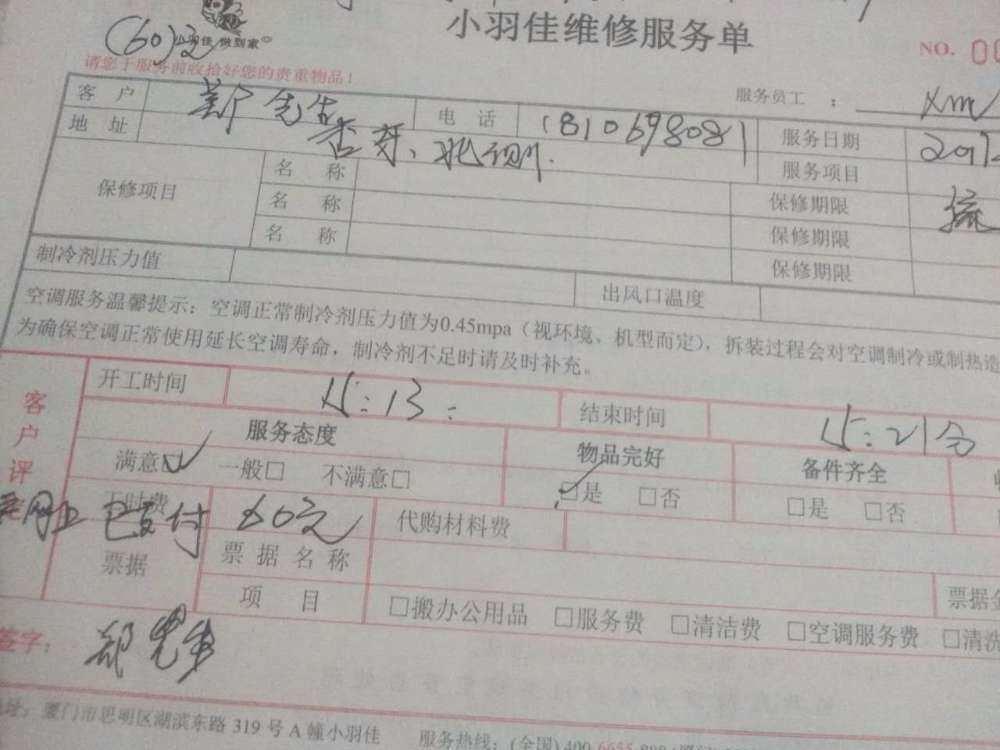 小羽佳维修服务单
(60)2
小羽佳 做到家
NO. 00
请您于服务前收拾好您的贵重物品！
服务员工：
客户 先生 电话 服务日期
地址 服务项目
保修项目 名称 保修期限
名称 保修期限
名称 保修期限
制冷剂压力值 出风口温度
空调服务温馨提示：空调正常制冷剂压力值为0.45mpa（视环境、机型而定），拆装过程会对空调制冷或制热造
为确保空调正常使用延长空调寿命，制冷剂不足时请及时补充。
开工时间 15:13 结束时间 15:21分
客户评
服务态度 物品完好 备件齐全
满意☑ 一般□ 不满意□ ☑是 □否 □是 □否
工时费 60元 代购材料费
网上已支付
票据 票据名称
项目 □搬办公用品 □服务费 □清洁费 □空调服务费 □清洗
签字：郑先生
地址：厦门市思明区湖滨东路 319 号 A 幢小羽佳 服务热线：(全国) 400-6655-888